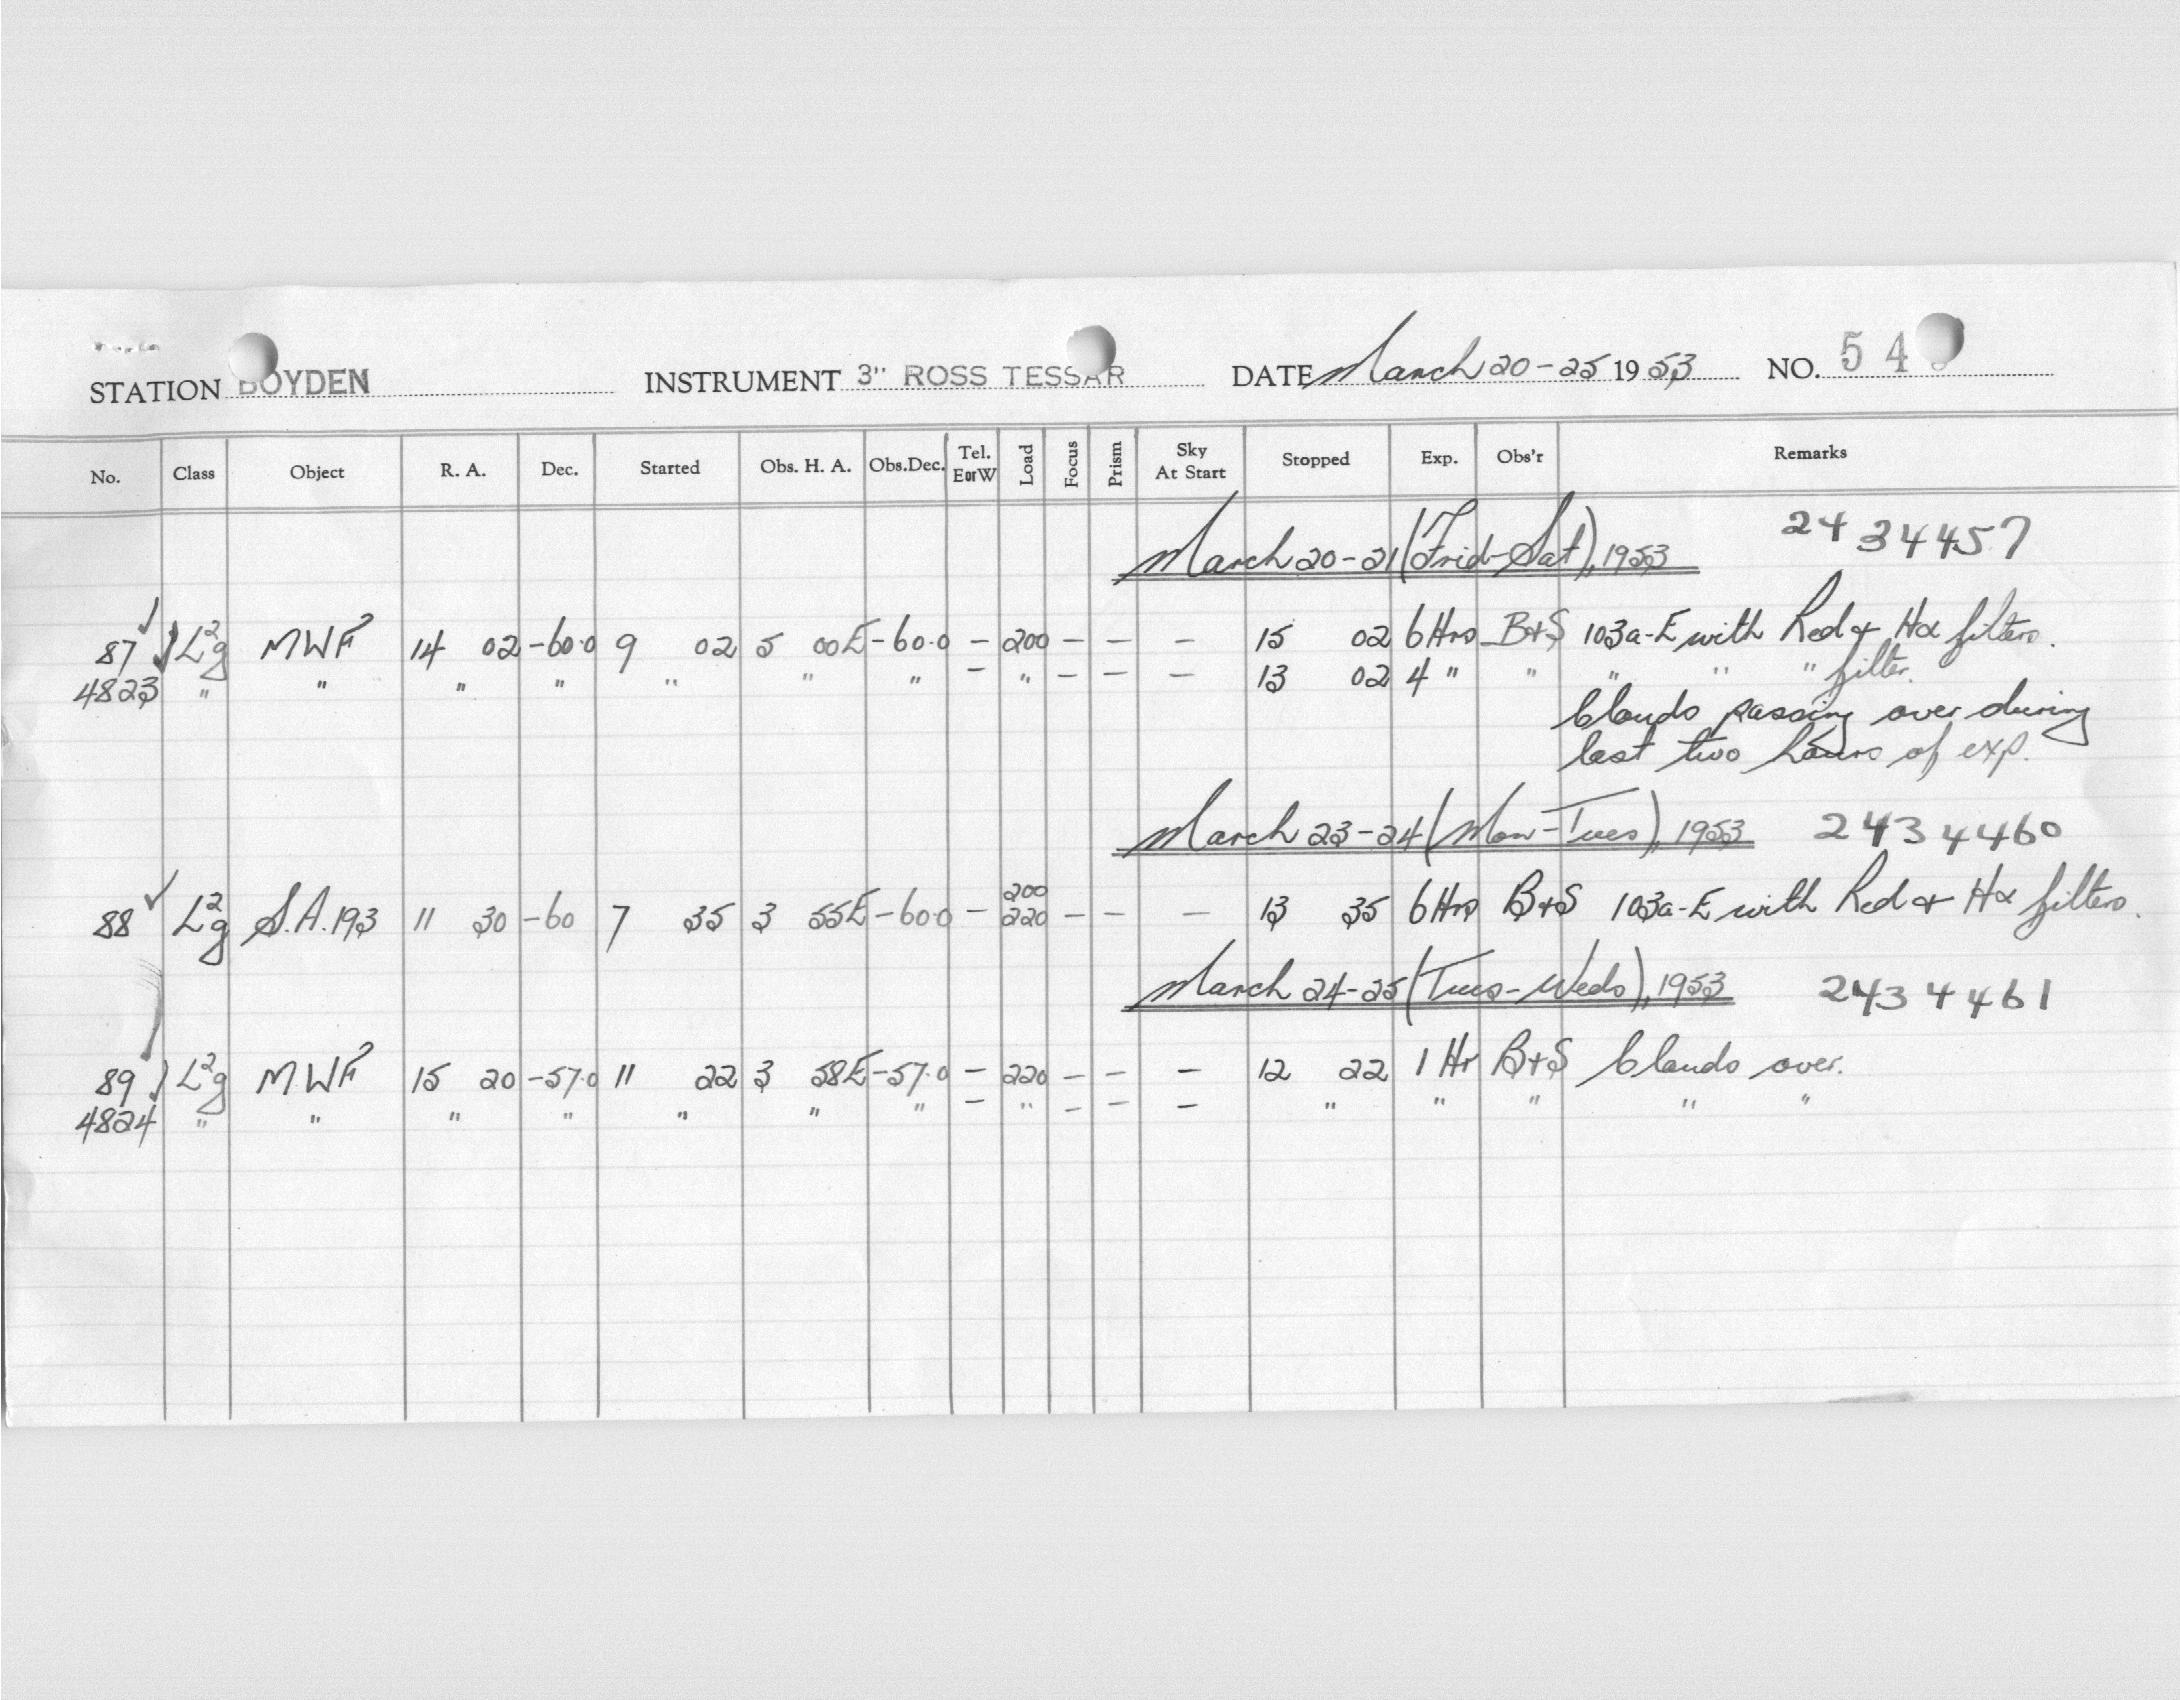 STATION BOYDEN INSTRUMENT 3" ROSS TESSAR DATE March 20-25 1953 NO. 54
No. Class Object R. A. Dec. Started Obs. H. A. Obs.Dec. Tel. EorW Load Focus Prism Sky At Start Stopped Exp. Obs'r Remarks
March 20-21 (Frid-Sat), 1953 2434457
87 L2g MWF 14 02 -60.0 9 02 5 00E -60.0 - 200 - - - 15 02 6 Hrs B+S 103a-E with Red & Hα filters.
4823 " " " " " " " - " - - - 13 02 4 " " " " " filter.
Clouds passing over during
last two hours of exp.
March 23-24 (Mon-Tues), 1953 2434460
88 L2g S.A.193 11 30 -60 7 35 3 55E -60.0 - 200 220 - - - 13 35 6 Hrs B+S 103a-E with Red & Hα filters.
March 24-25 (Tues-Weds), 1953 2434461
89 L2g MWF 15 20 -57.0 11 22 3 58E -57.0 - 220 - - - 12 22 1 Hr B+S Clouds over.
4824 " " " " " " " - " - - - " " " " "